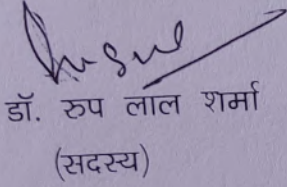 डॉ. रुप लाल शर्मा
(सदस्य)